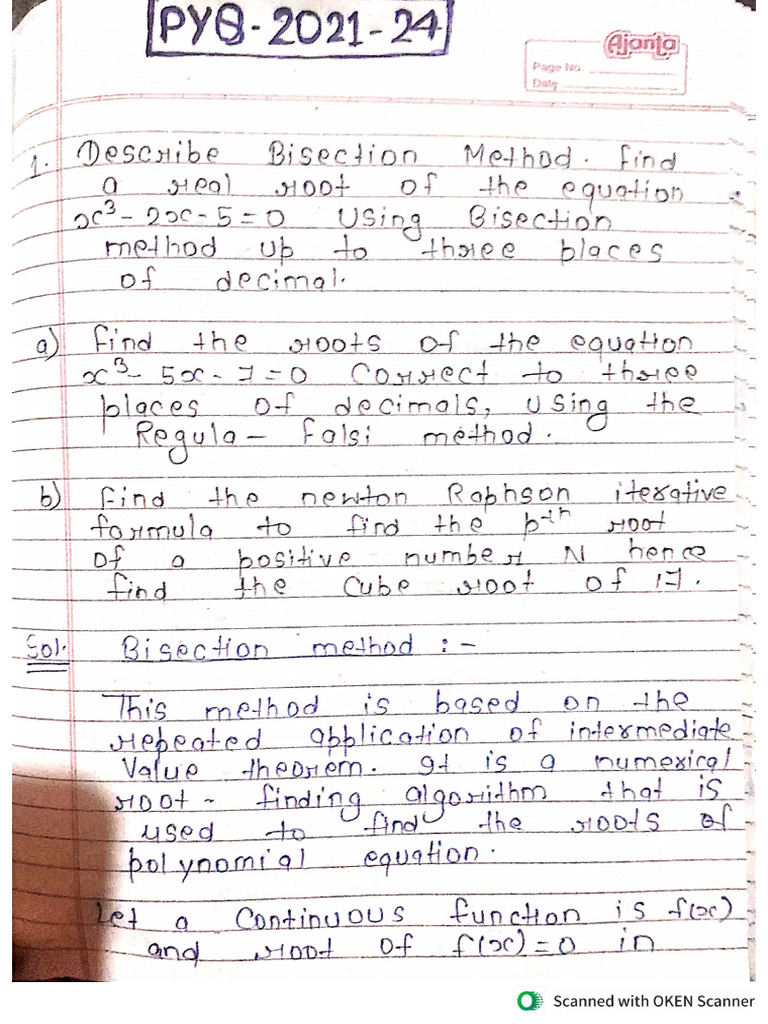 PYQ-2021-24
Ajanta
Page No.
Date
1. Describe Bisection Method. find
a real root of the equation
x³-2x-5=0 using Bisection
method up to three places
of decimal.
a) find the roots of the equation
x³-5x-7=0 correct to three
places of decimals, using the
Regula- falsi method.
b) find the newton Raphson iterative
formula to find the p-th root
of a positive number N hence
find the cube root of 17.
Sol. Bisection method :-
This method is based on the
repeated application of intermediate
value theorem. It is a numerical
root- finding algorithm that is
used to find the roots of
polynomial equation.
Let a continuous function is f(x)
and root of f(x)=0 in
Scanned with OKEN Scanner